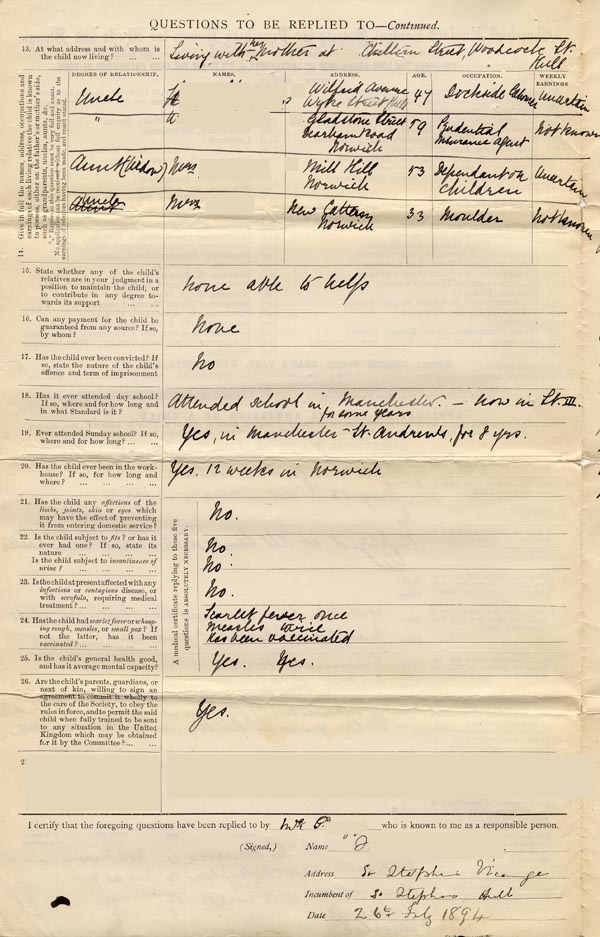 QUESTIONS TO BE REPLIED TO—Continued.
13. At what address and with whom is
the child now living? ... ...
Living with her Mother at Chiltern Street, Woodcock St.
Hull
14. Give in full the names, address, occupations and
earnings of each living relative the child is known
to possess, either on the father's or mother's side,
such as grandparents, uncles, aunts, &c.
Replies to this question must be very full and exact.
No application can be received without full enquiry as to the
earnings of relatives having been made, and result stated.
DEGREE OF RELATIONSHIP. NAMES. ADDRESS. AGE. OCCUPATION. WEEKLY
EARNINGS
Uncle Wilford Avenue 47 Dockside Labourer Uncertain
Wyke Street Hull
" Gladstone Street 59 Prudential Not known
Dearham Road Insurance Agent
Norwich
Aunt (Widow) Mrs Mill Hill 53 Dependant on Uncertain
Norwich Children
Uncle Mrs New Catton 33 Moulder Not known
Aunt Norwich
15. State whether any of the child's
relatives are in your judgment in a
position to maintain the child, or
to contribute in any degree to-
wards its support ... ...
none able to help
16. Can any payment for the child be
guaranteed from any source? If so,
by whom?
None
17. Has the child ever been convicted? If
so, state the nature of the child's
offence and term of imprisonment
No
18. Has it ever attended day school?
If so, where and for how long and
in what Standard is it?
Attended school in Manchester. — now in St. III.
for some years
19. Ever attended Sunday school? If so,
where and for how long? ... ...
Yes, in Manchester St. Andrews, for 8 yrs.
20. Has the child ever been in the work-
house? If so, for how long and
where? ... ... ... ...
Yes. 12 weeks in Norwich
A medical certificate replying to those five
questions is ABSOLUTELY NECESSARY.
21. Has the child any affections of the
limbs, joints, skin or eyes which
may have the effect of preventing
it from entering domestic service?
No.
22. Is the child subject to fits? or has it
ever had one? If so, state its
nature ... ... ... ...
No.
Is the child subject to incontinence of
urine? ... ... ... ...
No.
23. Is the child at present affected with any
infectious or contagious disease, or
with scrofula, requiring medical
treatment? ... ... ...
No.
24. Has the child had scarlet fever or whoop-
ing cough, measles, or small pox? If
not the latter, has it been
vaccinated? ... ... ...
Scarlet fever once
Measles twice
Has been vaccinated
25. Is the child's general health good,
and has it average mental capacity?
Yes. Yes.
26. Are the child's parents, guardians, or
next of kin, willing to sign an
agreement to commit it wholly to
the care of the Society, to obey the
rules in force, and to permit the said
child when fully trained to be sent
to any situation in the United
Kingdom which may be obtained
for it by the Committee? ... ...
Yes.
2
I certify that the foregoing questions have been replied to by Mr P. who is known to me as a responsible person.
(Signed,) Name J
Address St Stephens Vicarage
Incumbent of St Stephens Hull
Date 26th Feby 1894